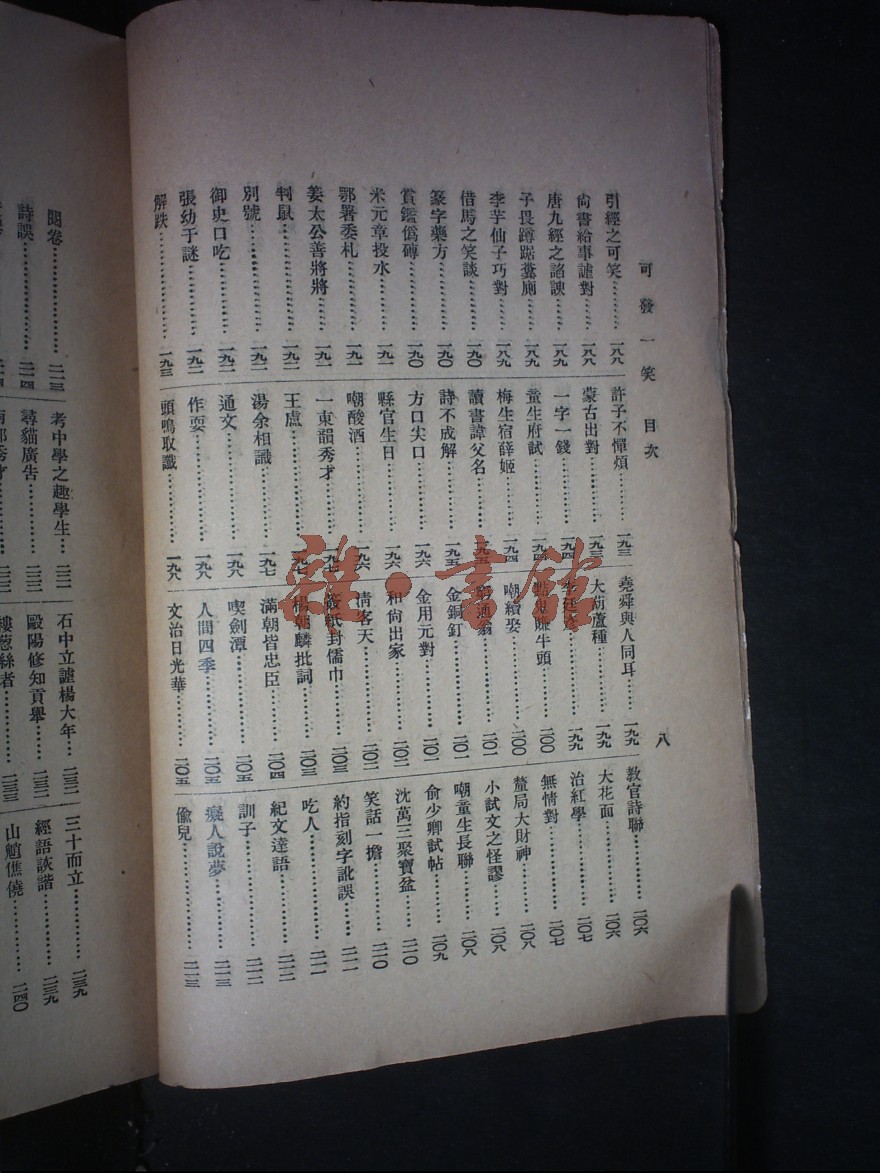 可發一笑 目次
八
引經之可笑…………一八八
尙書給事謔對…………一八八
唐九經之諂諛…………一八九
子畏蹲踞糞廁…………一八九
李芋仙子巧對…………一八九
借馬之笑談…………一九〇
篆字藥方…………一九〇
賞鑑僞磚…………一九〇
米元章投水…………一九一
鄂署委札…………一九一
姜太公善將將…………一九一
判鼠…………一九二
別號…………一九二
御史口吃…………一九二
張幼于謎…………一九二
解跌…………一九三
許子不憚煩…………一九三
蒙古出對…………一九三
一字一錢…………一九四
童生府試…………一九四
梅生宿薛姬…………一九四
讀書諱父名…………一九五
詩不成解…………一九五
方口尖口…………一九六
縣官生日…………一九六
嘲酸酒…………一九六
一東韻秀才…………一九七
王盧…………一九七
湯余相譏…………一九七
通文…………一九八
作耍…………一九八
頭鳴取讖…………一九八
堯舜與人同耳…………一九九
大葫蘆種…………一九九
一九九
牛頭…………二〇〇
嘲續娶…………二〇〇
翁…………二〇一
金銅釘…………二〇一
金用元對…………二〇一
和尙出家…………二〇二
清客天…………二〇二
簽紙對儒巾…………二〇三
楊朝麟批詞…………二〇三
滿朝皆忠臣…………二〇四
喫劍潭…………二〇五
人間四季…………二〇五
文治日光華…………二〇五
教官詩聯…………二〇六
大花面…………二〇六
治紅學…………二〇七
無情對…………二〇七
釐局大財神…………二〇八
小試文之怪謬…………二〇八
嘲童生長聯…………二〇八
俞少卿試帖…………二〇九
沈萬三聚寶盆…………二一〇
笑話一擔…………二一〇
約指刻字訛誤…………二一一
吃人…………二一一
紀文達語…………二一二
訓子…………二一二
癡人說夢…………二一三
偸兒…………二一三
閱卷…………二一三
詩誤…………二一四
考中學之趣學生…二三一
尋貓廣告…………二三二
石中立謔楊大年…二三二
毆陽修知貢舉…………二三二
樓葱絲者…………二三三
三十而立…………二三九
經語詼諧…………二三九
山魈僬僥…………二四〇
雜·書館